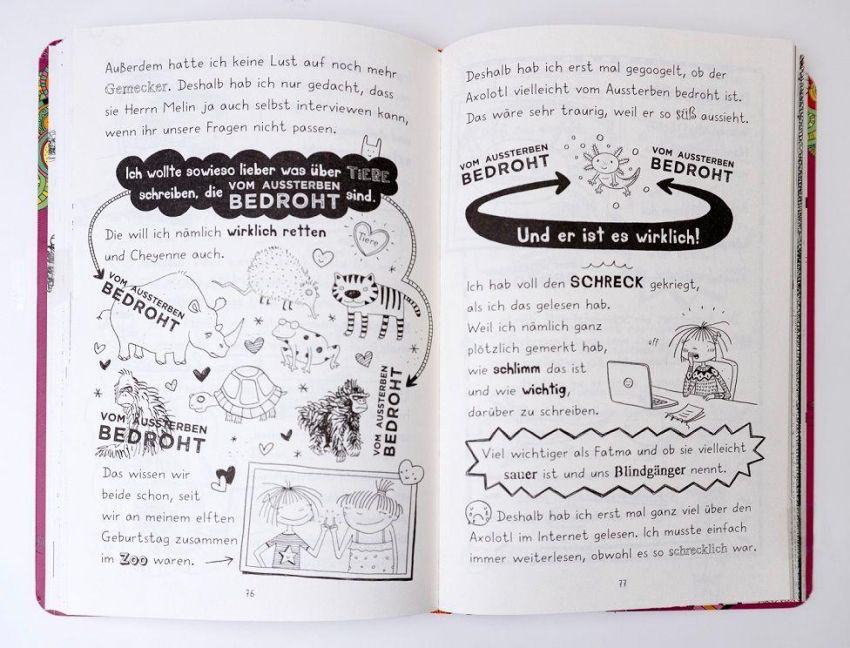 Außerdem hatte ich keine Lust auf noch mehr
Gemecker. Deshalb hab ich nur gedacht, dass
sie Herrn Melin ja auch selbst interviewen kann,
wenn ihr unsere Fragen nicht passen.
Ich wollte sowieso lieber was über TIERE
schreiben, die VOM AUSSTERBEN
BEDROHT sind.
Die will ich nämlich wirklich retten
und Cheyenne auch.
Tiere
VOM AUSSTERBEN
BEDROHT
VOM AUSSTERBEN
BEDROHT
VOM AUSSTERBEN
BEDROHT
Das wissen wir
beide schon, seit
wir an meinem elften
Geburtstag zusammen
im Zoo waren.
76
Deshalb hab ich erst mal gegoogelt, ob der
Axolotl vielleicht vom Aussterben bedroht ist.
Das wäre sehr traurig, weil er so süß aussieht.
VOM AUSSTERBEN
BEDROHT
VOM AUSSTERBEN
BEDROHT
Und er ist es wirklich!
Ich hab voll den SCHRECK gekriegt,
als ich das gelesen hab.
Weil ich nämlich ganz
plötzlich gemerkt hab,
wie schlimm das ist
und wie wichtig,
darüber zu schreiben.
uff
Viel wichtiger als Fatma und ob sie vielleicht
sauer ist und uns Blindgänger nennt.
Deshalb hab ich erst mal ganz viel über den
Axolotl im Internet gelesen. Ich musste einfach
immer weiterlesen, obwohl es so schrecklich war.
77